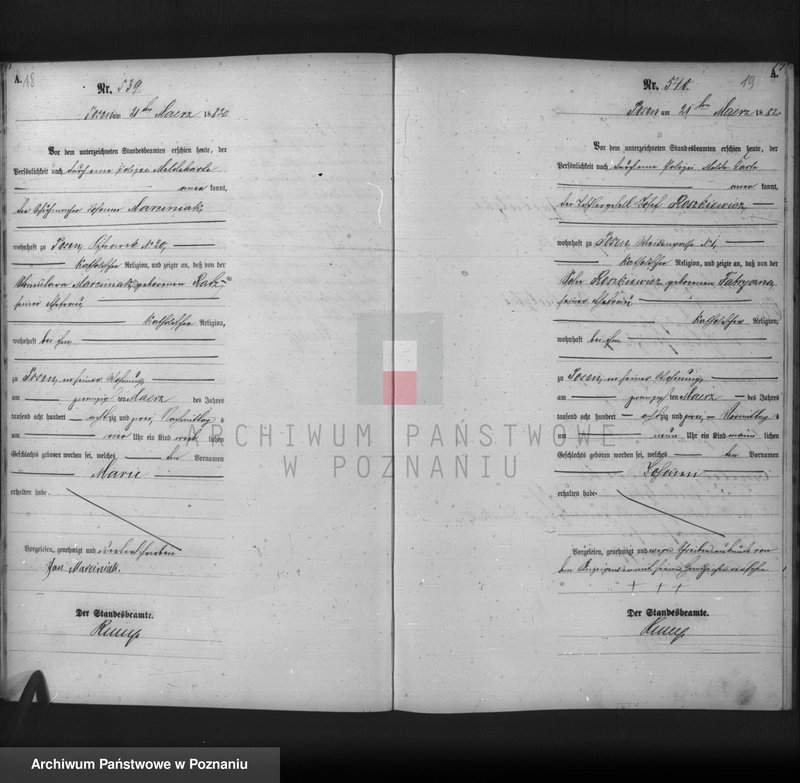 A. 18
Nr. 539.
Posen am 21 ten Maerz 1882.
Vor dem unterzeichneten Standesbeamten erschien heute, der
Persönlichkeit nach durch eine Polizei Meldekarte
anerkannt,
der Schuhmacher Johann Marciniak,
wohnhaft zu Posen, № 20,
katholischer Religion, und zeigte an, daß von der
Stanislawa Marciniak, geborenen
seiner Ehefrau,
katholischer Religion,
wohnhaft bei ihm,
zu Posen, in seiner Wohnung,
am zwanzigsten Maerz des Jahres
tausend acht hundert achtzig und zwei, Nachmittags
um vier Uhr ein Kind weiblichen
Geschlechts geboren worden sei, welches den Vornamen
Marie
erhalten habe.
Vorgelesen, genehmigt und unterschrieben
Jan Marciniak.
Der Standesbeamte.
19 A.
Nr. 540.
Posen am 21 ten Maerz 1882.
Vor dem unterzeichneten Standesbeamten erschien heute, der
Persönlichkeit nach durch eine Polizei Melde Karte
anerkannt,
der Josef Roszkiewicz
wohnhaft zu Posen, № 1,
katholischer Religion, und zeigte an, daß von der
Roszkiewicz geborenen
seiner Ehefrau
katholischer Religion,
wohnhaft bei ihm
zu Posen, in seiner Wohnung,
am zwanzigsten Maerz des Jahres
tausend acht hundert achtzig und zwei, Vormittags
um neun Uhr ein Kind männlichen
Geschlechts geboren worden sei, welches den Vornamen
Johann
erhalten habe.
Vorgelesen, genehmigt und wegen Schreibensunkunde von
dem Anzeigenden mit seinem Handzeichen versehen
+ + +
Der Standesbeamte.
ARCHIWUM PAŃSTWOWE
W POZNANIU
Archiwum Państwowe w Poznaniu